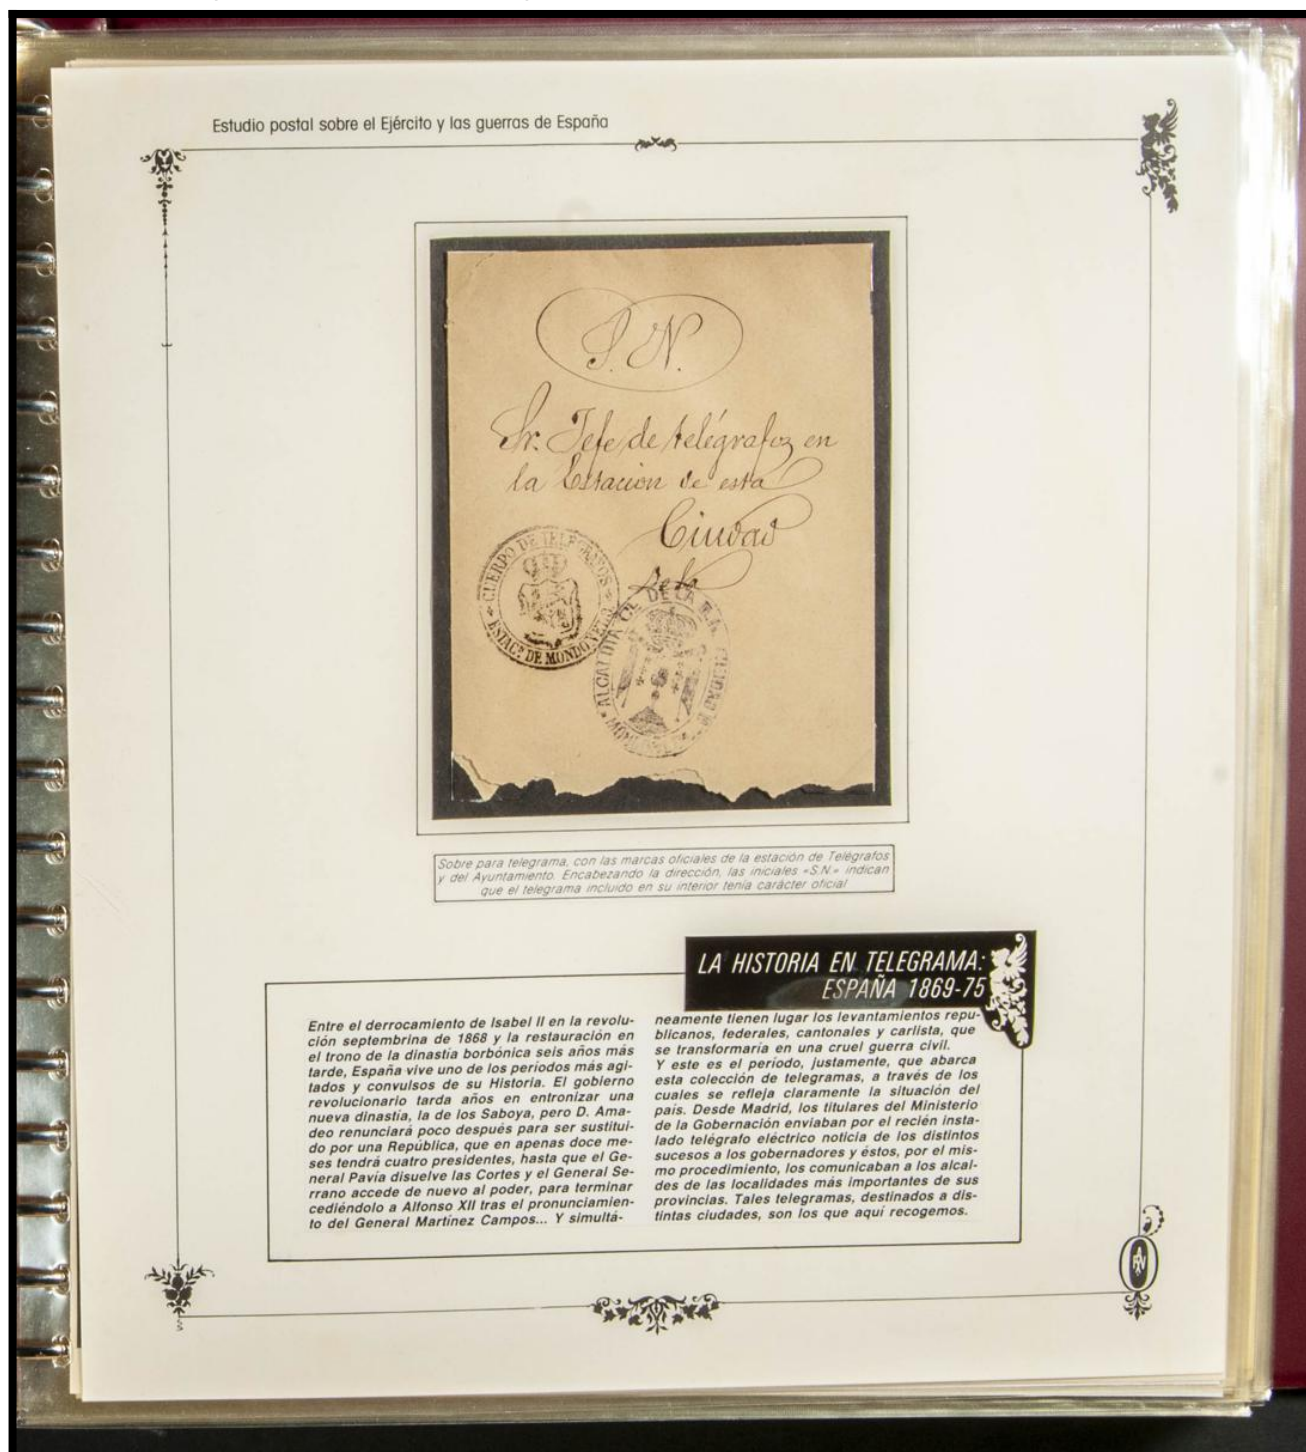 Estudio postal sobre el Ejército y las guerras de España
S. N.
Sr. Jefe de telégrafos en
la Estacion de esta
Ciudad
CUERPO DE TELÉGRAFOS
ESTACN. DE MONDOÑEDO
ALCALDIA CL. DE LA M.N. CIUDAD D
Sobre para telegrama, con las marcas oficiales de la estación de Telégrafos
y del Ayuntamiento. Encabezando la dirección, las iniciales «S.N.» indican
que el telegrama incluido en su interior tenía carácter oficial
LA HISTORIA EN TELEGRAMA:
ESPAÑA 1869-75
Entre el derrocamiento de Isabel II en la revolu-
ción septembrina de 1868 y la restauración en
el trono de la dinastía borbónica seis años más
tarde, España vive uno de los periodos más agi-
tados y convulsos de su Historia. El gobierno
revolucionario tarda años en entronizar una
nueva dinastía, la de los Saboya, pero D. Ama-
deo renunciará poco después para ser sustitui-
do por una República, que en apenas doce me-
ses tendrá cuatro presidentes, hasta que el Ge-
neral Pavía disuelve las Cortes y el General Se-
rrano accede de nuevo al poder, para terminar
cediéndolo a Alfonso XII tras el pronunciamien-
to del General Martínez Campos... Y simultá-
neamente tienen lugar los levantamientos repu-
blicanos, federales, cantonales y carlista, que
se transformaría en una cruel guerra civil.
Y este es el período, justamente, que abarca
esta colección de telegramas, a través de los
cuales se refleja claramente la situación del
país. Desde Madrid, los titulares del Ministerio
de la Gobernación enviaban por el recién insta-
lado telégrafo eléctrico noticia de los distintos
sucesos a los gobernadores y éstos, por el mis-
mo procedimiento, los comunicaban a los alcal-
des de las localidades más importantes de sus
provincias. Tales telegramas, destinados a dis-
tintas ciudades, son los que aquí recogemos.